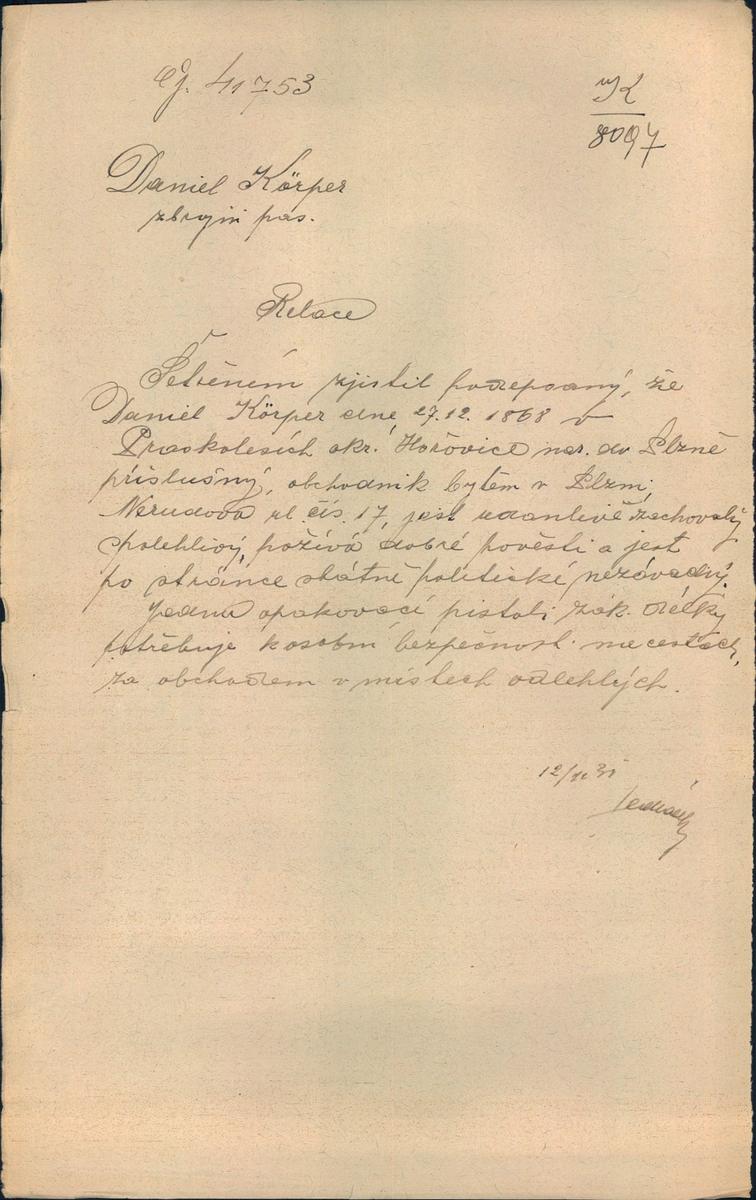 Čj. 41753
K
8097
Daniel Körper
zbrojní pas.
Relace
Šetřením zjistil podepsaný, že
Daniel Körper dne 27.12. 1868 v
Praskolesích okr. Hořovice nar. do Plzně
příslušný, obchodník bytem v Plzni,
Nerudova ul. čís. 17, jest zachovalý
spolehlivý, požívá dobré pověsti a jest
po stránce státně politické nezávadný.
Jednu opakovací pistoli zák. délky
potřebuje k osobní bezpečnosti na cestách,
za obchodem v místech odlehlých.